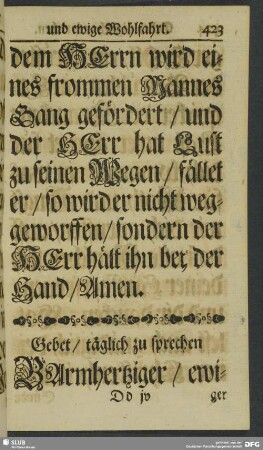 und ewige Wohlfahrt. 423
dem HErrn wird ei-
nes frommen Mannes
Gang gefördert / und
der HErr hat Lust
zu seinen Wegen / fället
er / so wird er nicht weg-
geworffen / sondern der
HErr hält ihn bey der
Hand / Amen.
Gebet / täglich zu sprechen
BArmhertziger / ewi-
Dd jv ger
SLUB
DFG